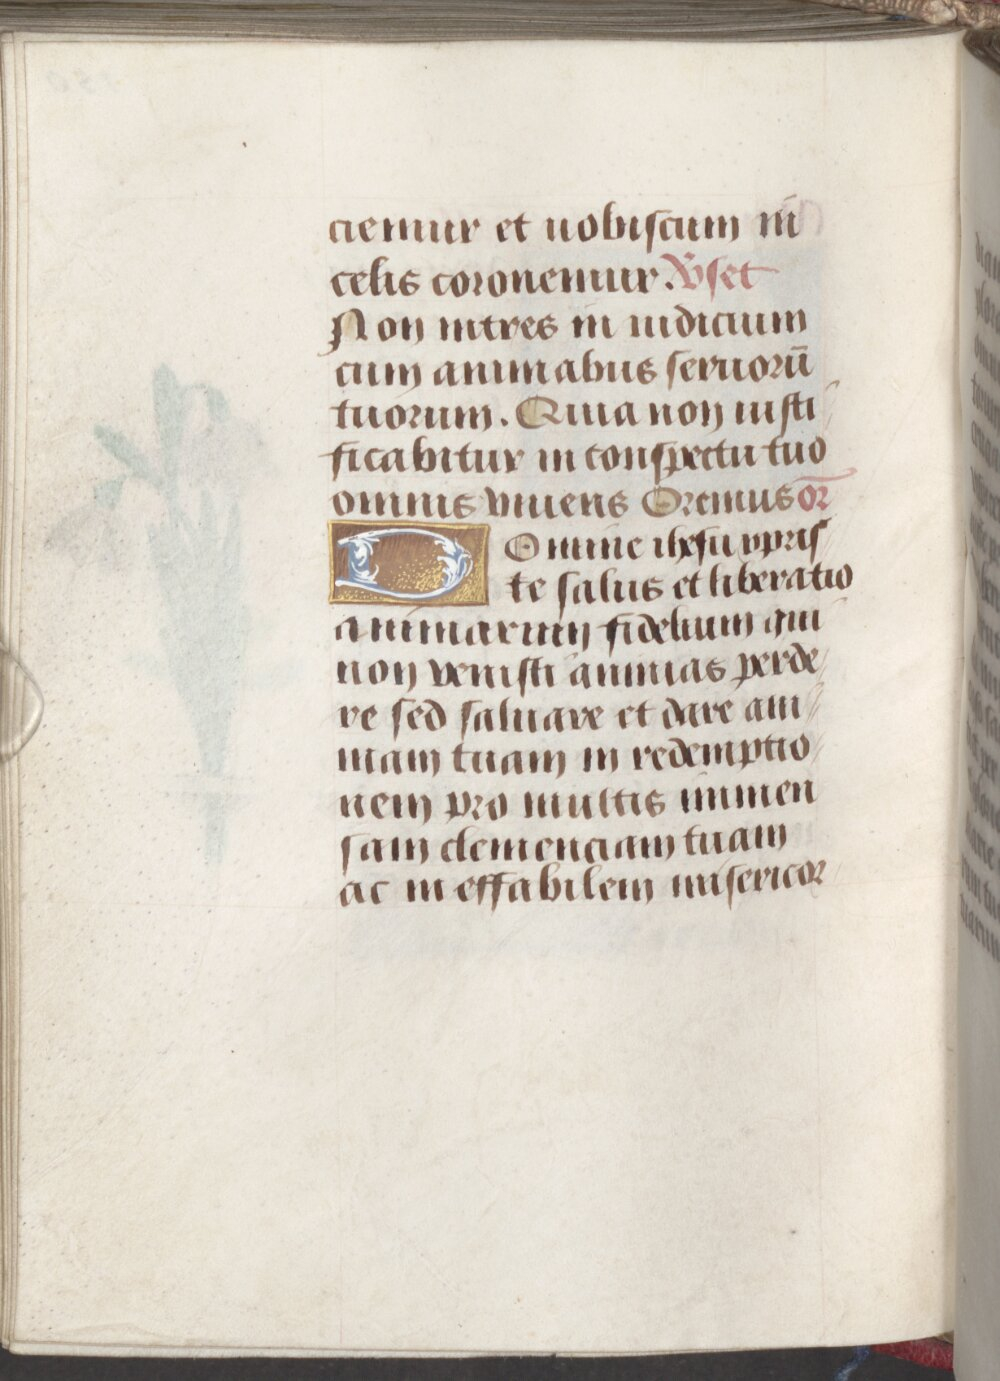 ciemur et uobiscum in
celis coronemur.
Non intres in iudicium
cum animabus seruorū
tuorum. Quia non iusti
ficabitur in conspectu tuo
omnis viuens Oremus or
Domine ihesu xpris
te salus et liberatio
animarum fidelium qui
non venisti animas perde
re sed saluare et dare ani
mam tuam in redemptio
nem pro multis immen
sam clemenciam tuam
ac in effabilem misericor